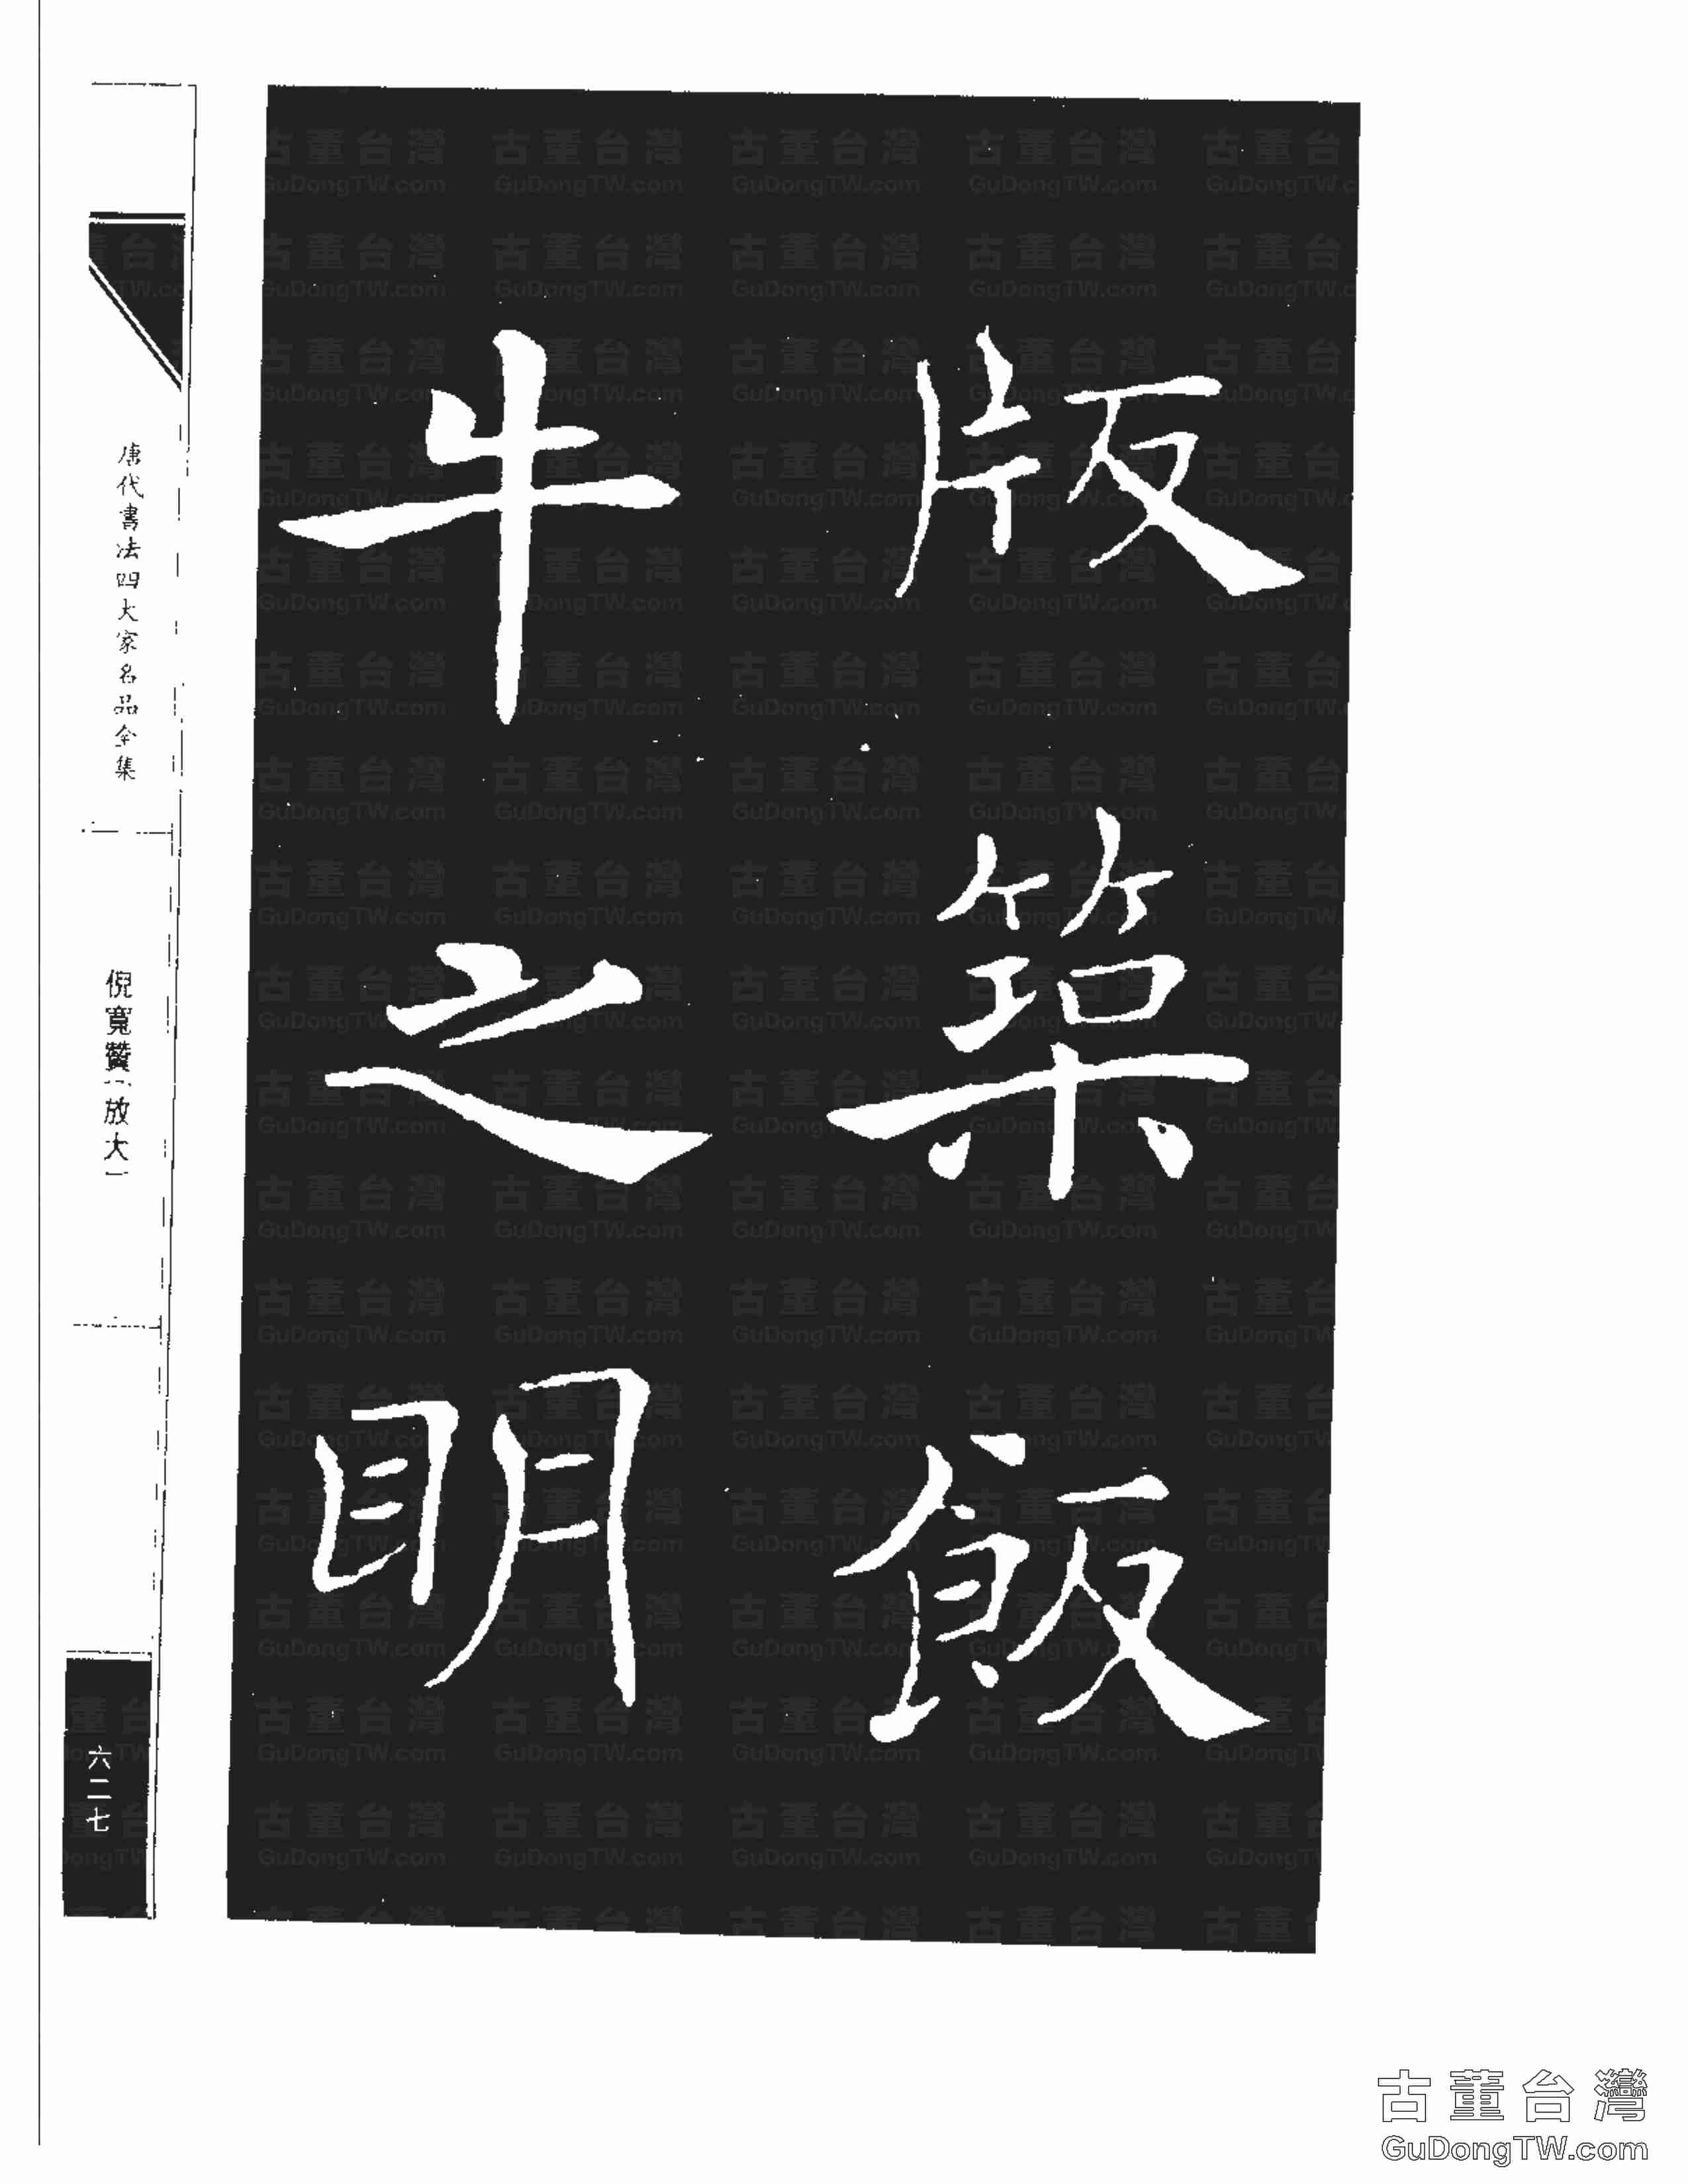 版築飯
牛之明
唐代書法四大家名品全集
倪寬贊(放大)
六二七
古董台灣
GuDongTW.com